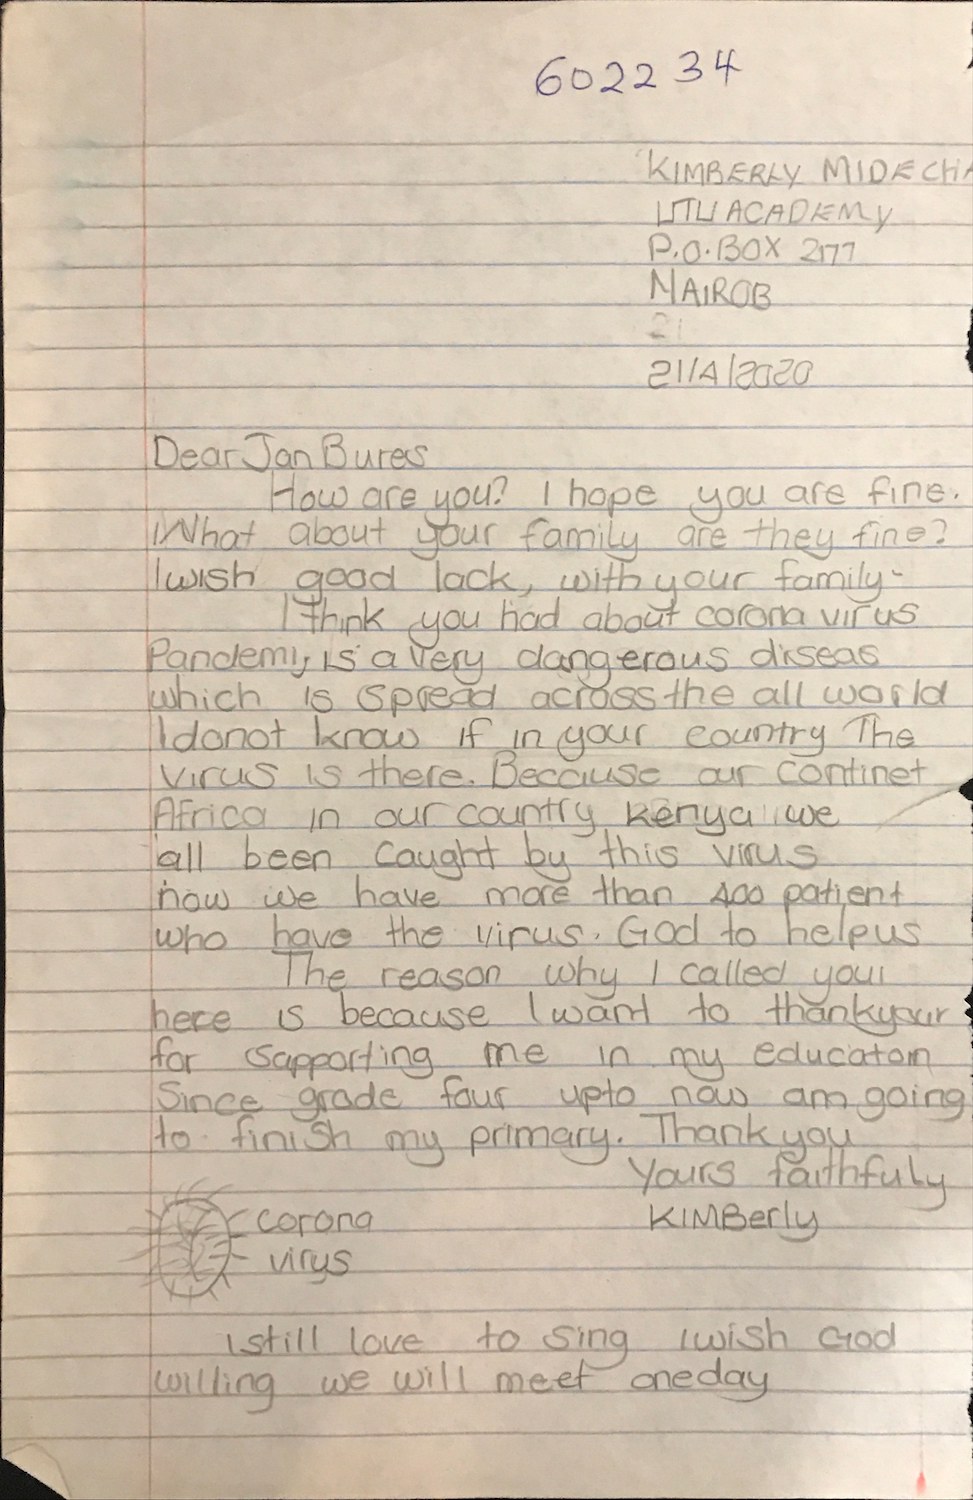 602234
KIMBERLY MIDECHA
UTU ACADEMY
P.O.BOX 2177
NAIROB
21
21/4/2020
Dear Jan Bures
How are you? I hope you are fine.
What about your family are they fine?
I wish good lack, with your family-
I think you had about corona virus
Pandemi, is a very dangerous diseas
which is spread across the all world
I donot know if in your country The
virus is there. Because our continet
Africa in our country Kenya we
all been caught by this virus
now we have more than 400 patient
who have the virus. God to help us
The reason why I called your
here is because I want to thankyour
for sapporting me in my educatoin
Since grade four upto now am going
to finish my primary. Thank you
Yours faithfuly
KIMBerly
corona
virus
I still love to sing I wish God
willing we will meet oneday